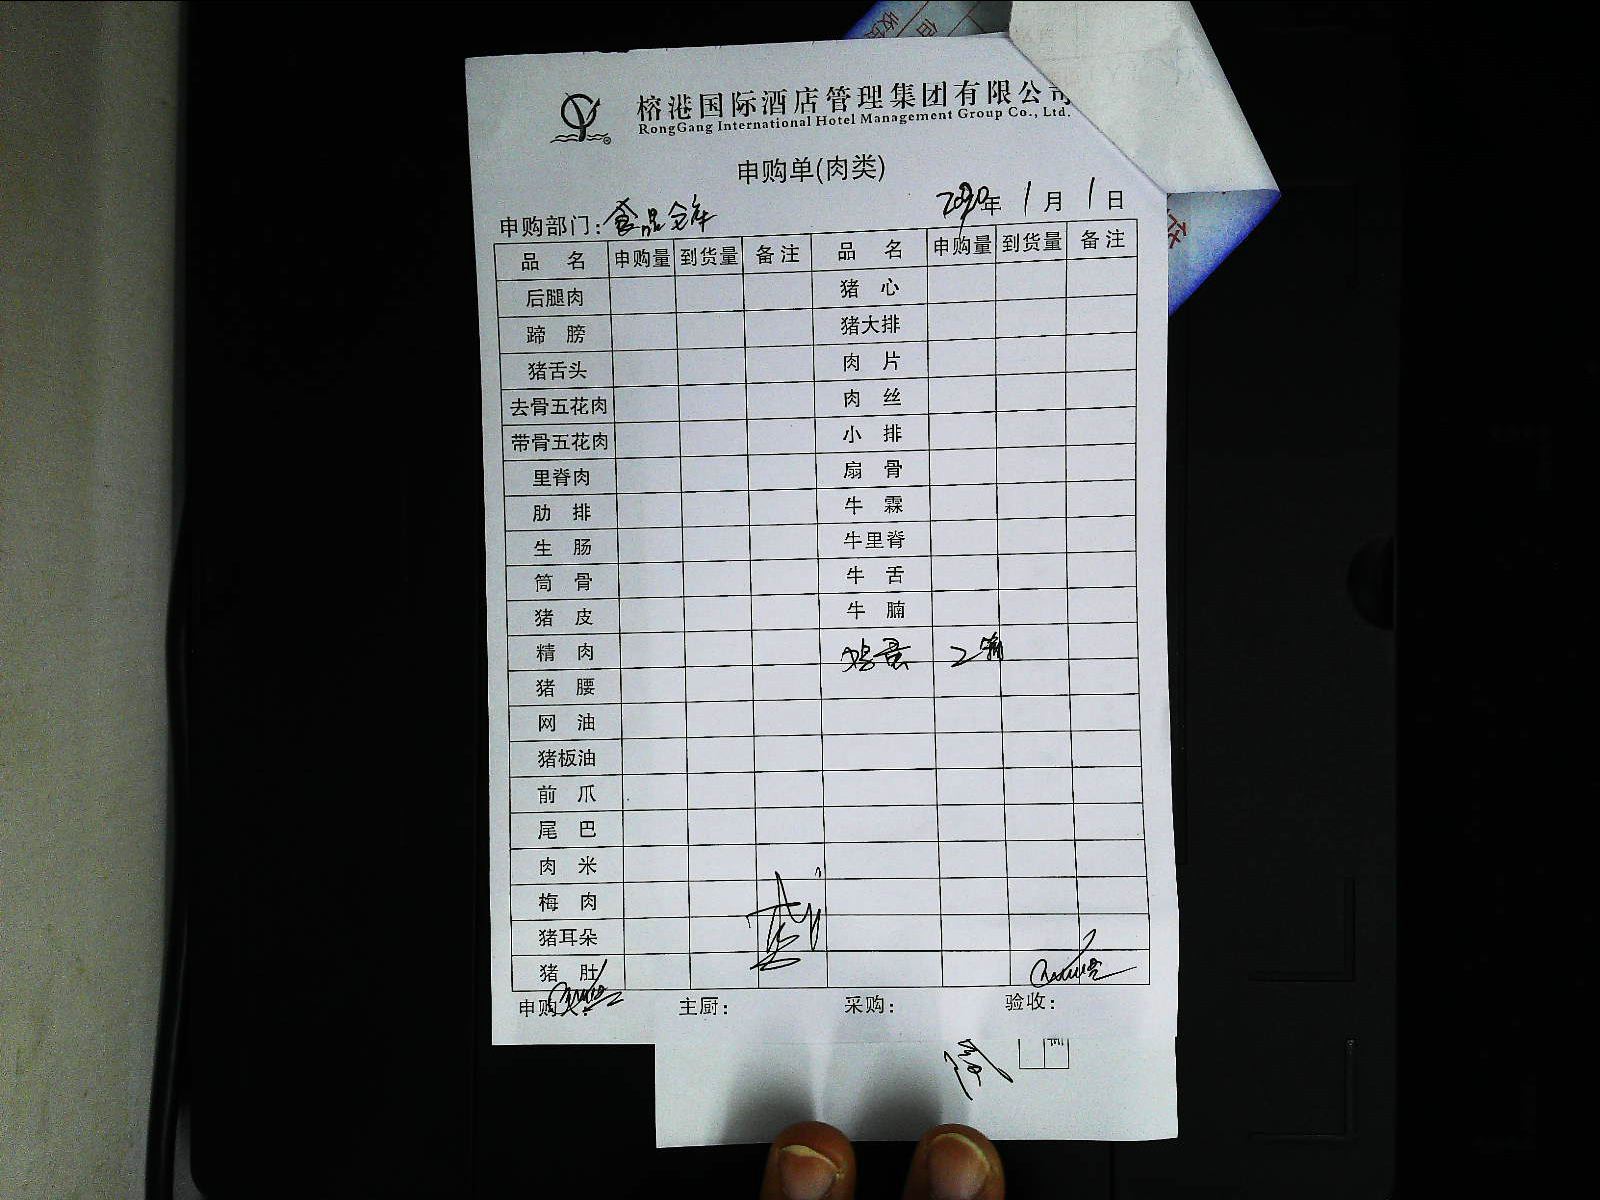 榕港国际酒店管理集团有限公司
RongGang International Hotel Management Group Co., Ltd.
申购单(肉类)
申购部门：食品仓库 2020年1月1日
品名 申购量 到货量 备注 品名 申购量 到货量 备注
后腿肉 猪心
蹄膀 猪大排
猪舌头 肉片
去骨五花肉 肉丝
带骨五花肉 小排
里脊肉 扇骨
肋排 牛霖
生肠 牛里脊
筒骨 牛舌
猪皮 牛腩
精肉 鸡蛋 2箱
猪腰
网油
猪板油
前爪
尾巴
肉米
梅肉
猪耳朵
猪肚
申购人： 主厨： 采购： 验收：